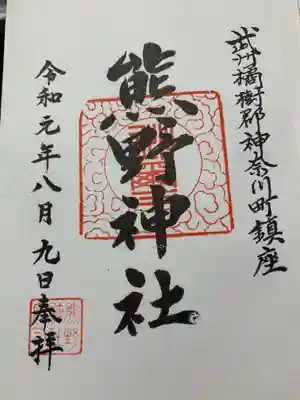 武州橘樹郡神奈川町鎮座
熊野神社
令和元年八月九日奉拝